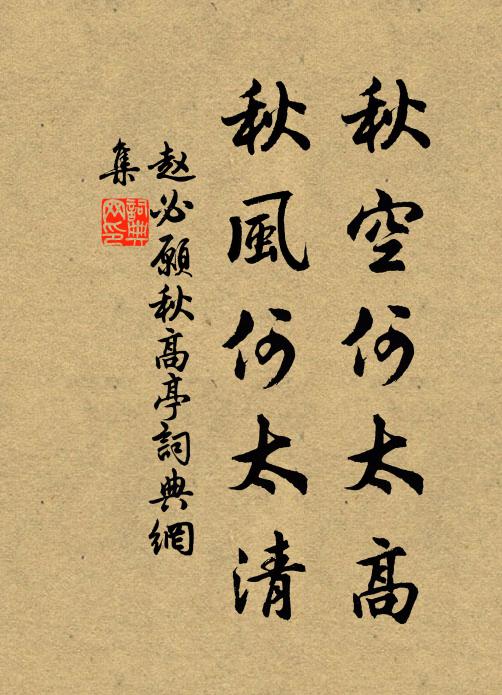 秋空何太高
秋風何太清
赵必願秋高亭詞典網
集
詞典
网印